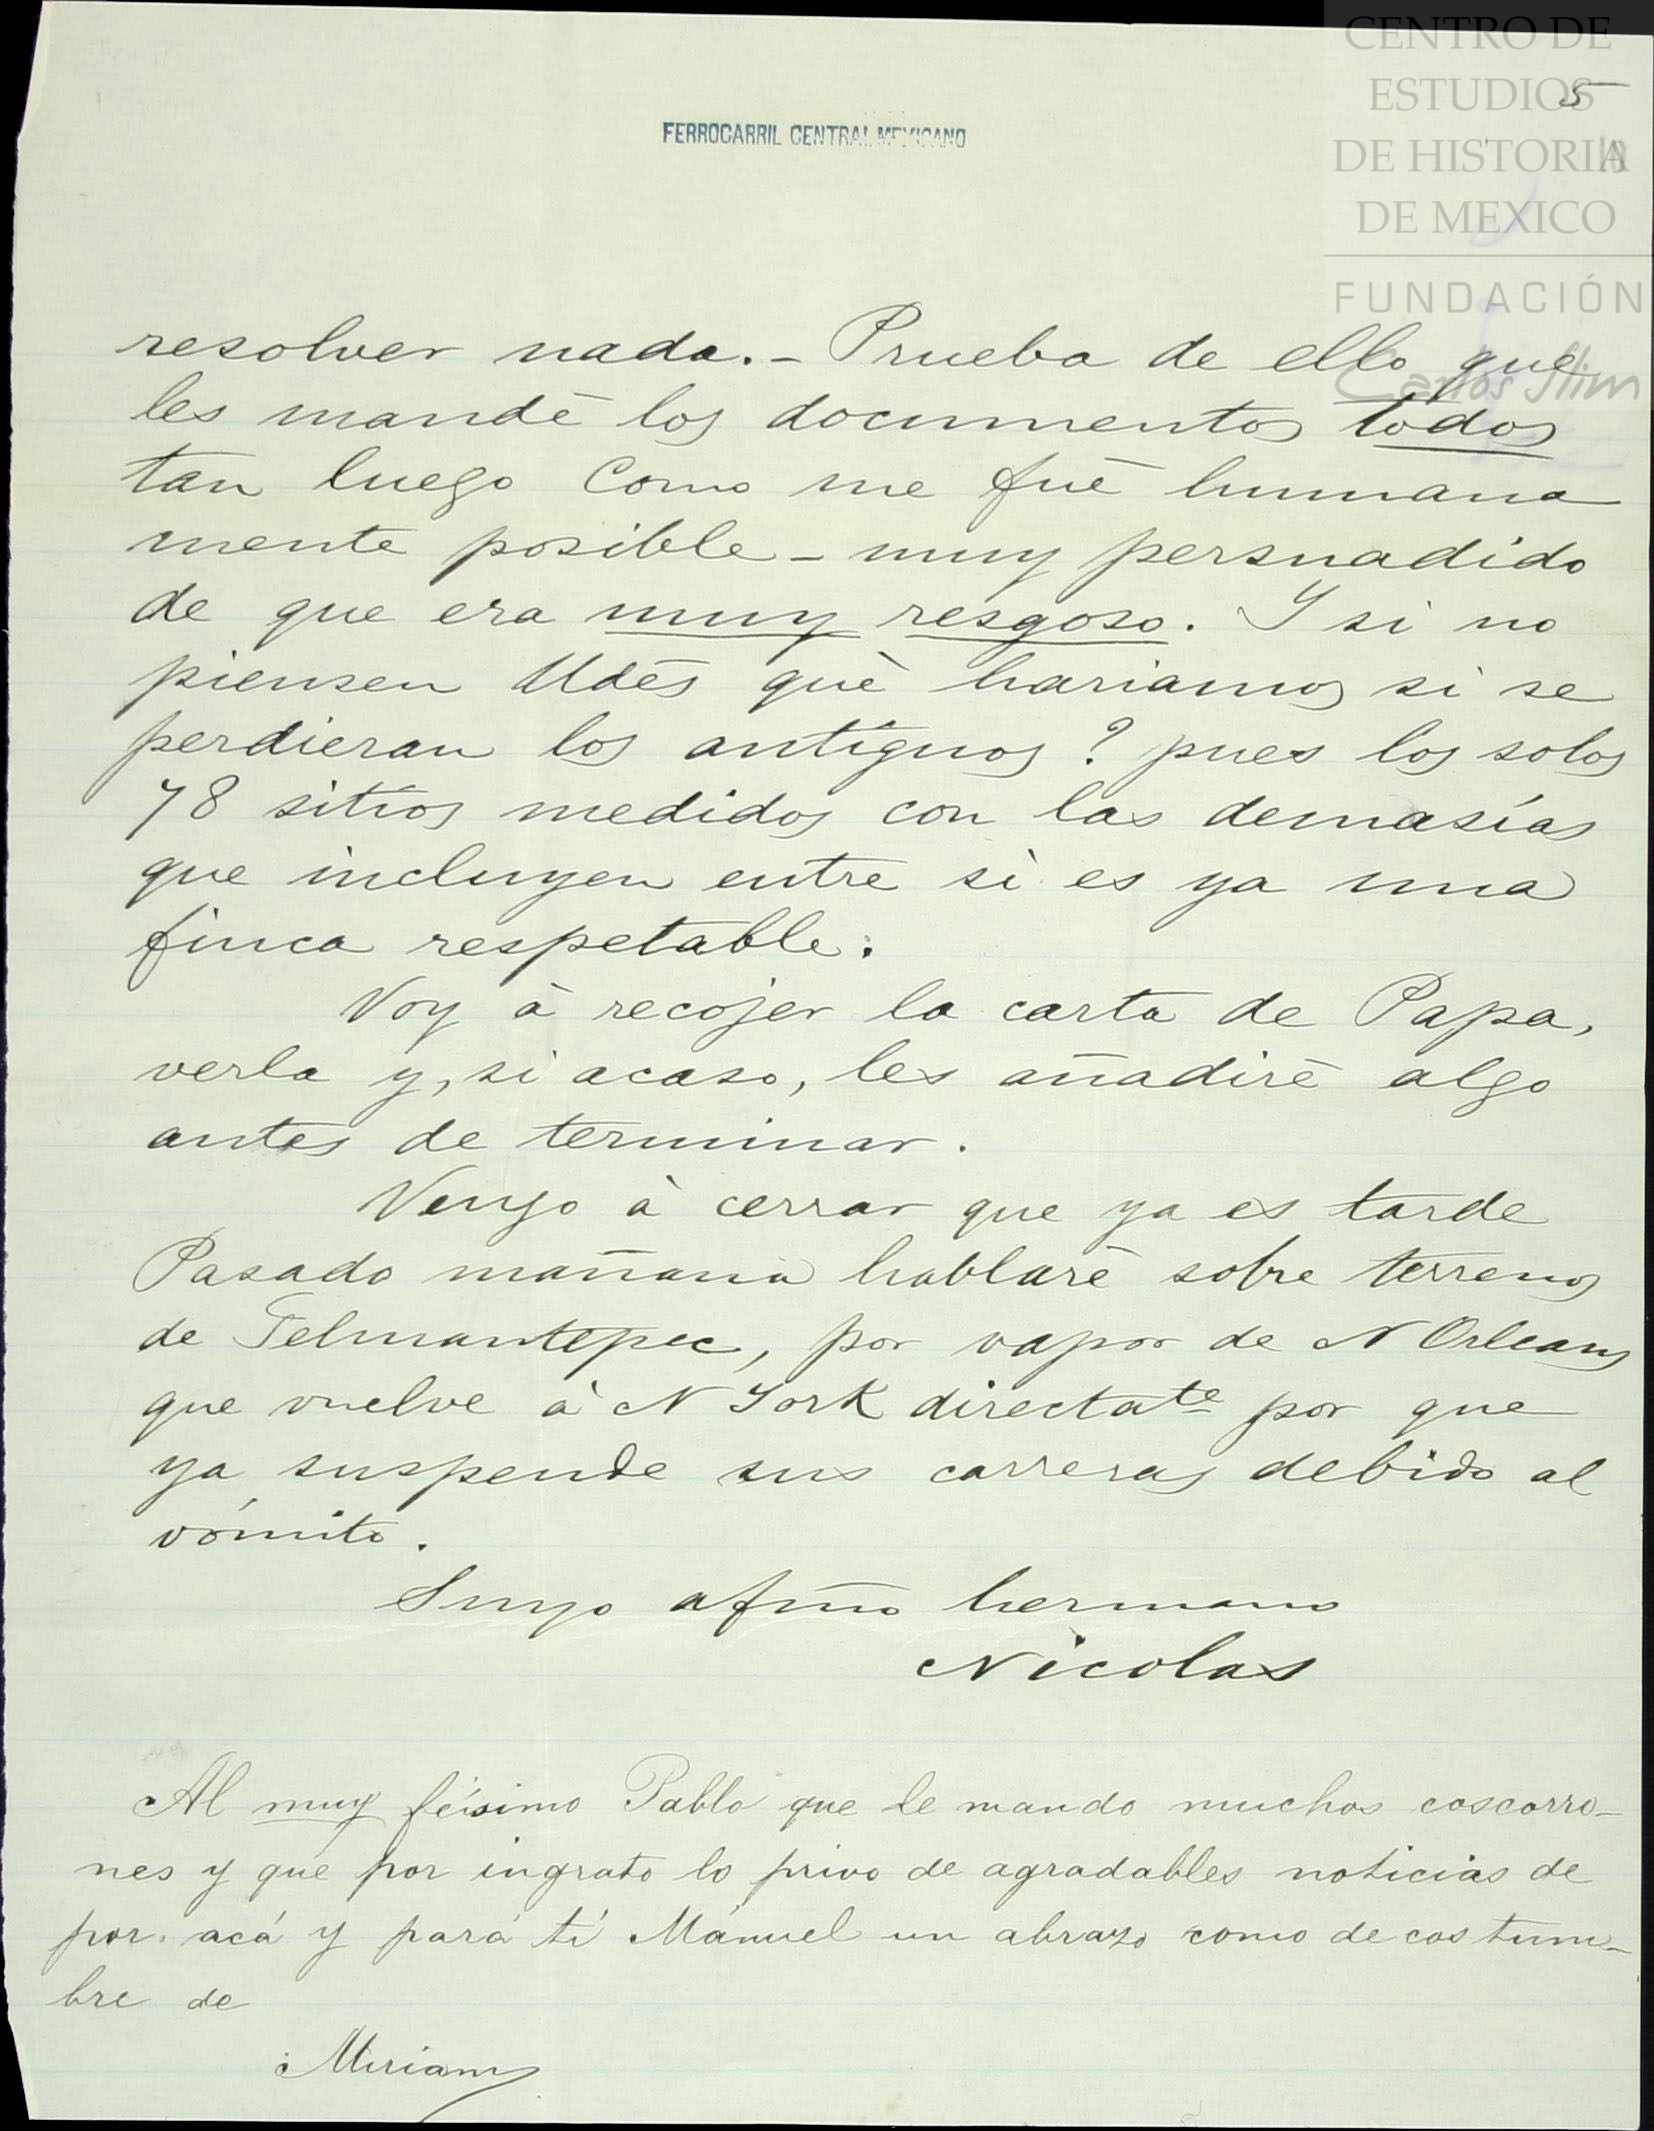 CENTRO DE
ESTUDIOS
DE HISTORIA
DE MEXICO
FUNDACIÓN
Carlos Slim
5
FERROCARRIL CENTRAL MEXICANO
resolver nada.- Prueba de ello que
les mandé los documentos todos
tan luego como me fué humana
mente posible - muy persuadido
de que era muy resgoso. Y si no
piensen Udes qué hariamos si se
perdieran los antiguos? pues los solos
78 sitios medidos con las demasías
que incluyen entre si es ya una
finca respetable.
Voy à recojer la carta de Papa,
verla y, si acaso, les añadiré algo
antes de terminar.
Vengo à cerrar que ya es tarde
Pasado mañana hablaré sobre terrenos
de Tehuantepec, por vapor de N Orleans
que vuelve à N York directate por que
ya suspende sus carreras debido al
vómito.
Suyo afmo hermano
Nicolas
Al muy feísimo Pablo que le mando muchos coscorro-
nes y que por ingrato lo privo de agradables noticias de
por acá y para tí Manuel un abrazo como de costum-
bre de
Miriam